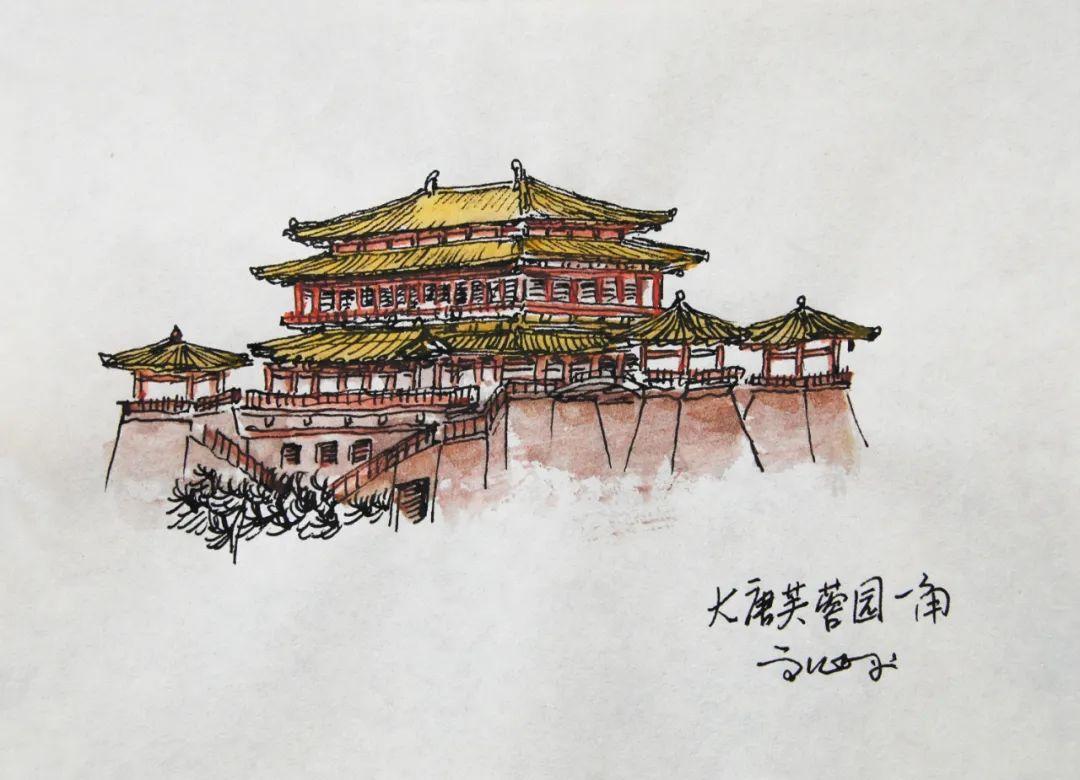 大唐芙蓉园一角